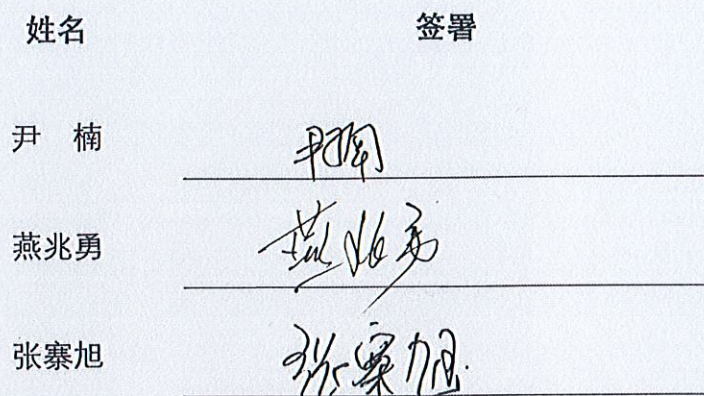 姓名 签署
尹 楠 尹楠
燕兆勇 燕兆勇
张寨旭 张寨旭